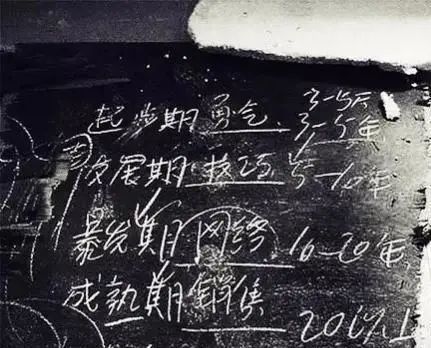 3-5天
起步期 勇气 3-5年
发展期 技巧 5-10年
暴发期 网络 10-20年
成熟期 销售 20以上